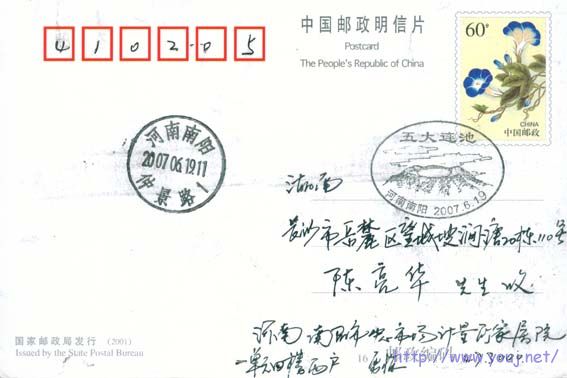 410205
中国邮政明信片
Postcard
The People's Republic of China
60分
CHINA
中国邮政
河南南阳
2007.06.19.11
伊景路1
五大连池
河南南阳 2007.6.19
湖南
长沙市岳麓区望城坡涧塘20栋110号
陈亮华 先生收
河南 南阳市 计量所家属院
国家邮政局发行 (2001)
Issued by the State Postal Bureau
一单元四楼西户
邮政编码
http://www.ybnj.net/